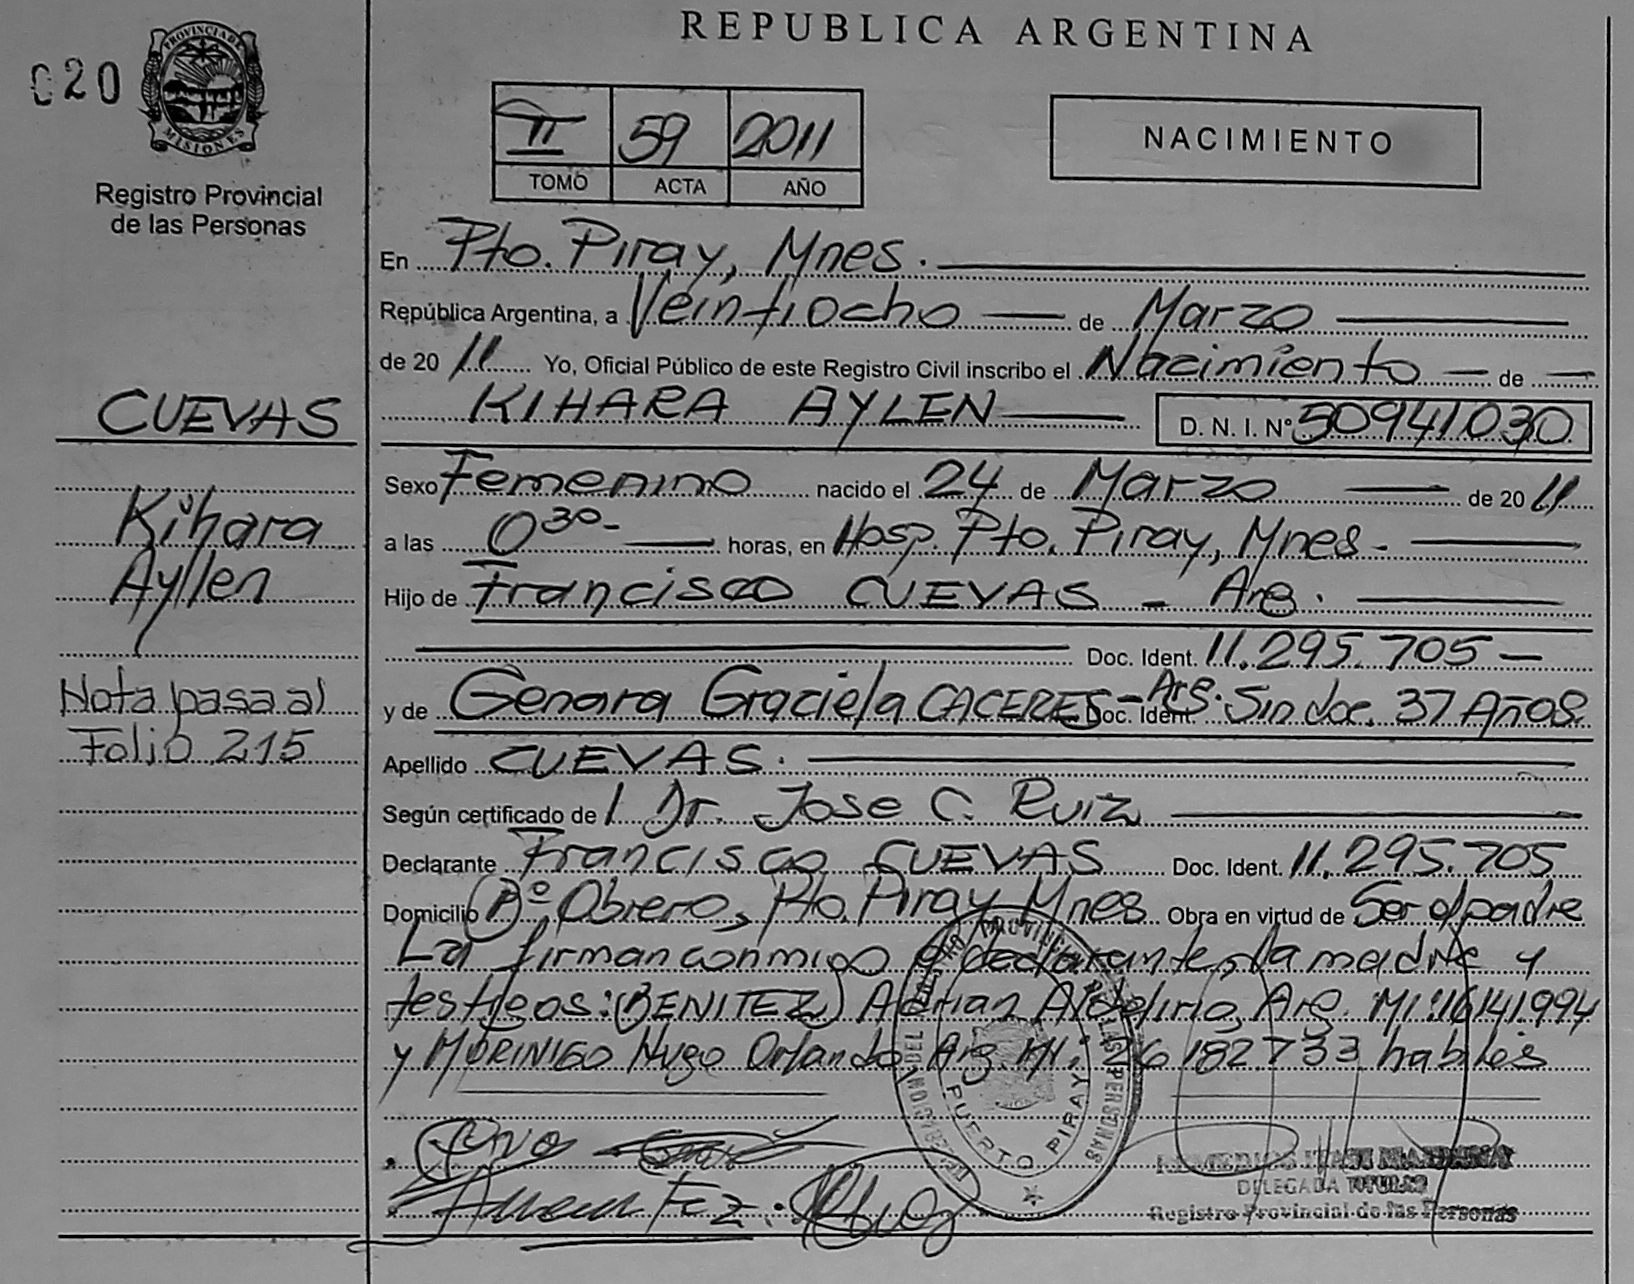 REPUBLICA ARGENTINA
020
PROVINCIA DE
MISIONES
Registro Provincial
de las Personas
II 59 2011
TOMO ACTA AÑO
NACIMIENTO
En Pto. Piray, Mnes.
República Argentina, a Veintiocho de Marzo
de 20 11 Yo, Oficial Público de este Registro Civil inscribo el Nacimiento de
KIHARA AYLEN D. N. I. Nº 50941030
CUEVAS
Kihara
Ayllen
Nota pasa al
Folio 215
Sexo Femenino nacido el 24 de Marzo de 20 11
a las 0 30 horas, en Hosp. Pto. Piray, Mnes -
Hijo de Francisco CUEVAS - Arg.
Doc. Ident. 11.295.705 -
y de Genara Graciela CACERES - Arg. Doc. Ident. Sin doc. 37 Años.
Apellido CUEVAS.
Según certificado de Dr. Jose C. Ruiz
Declarante Francisco CUEVAS Doc. Ident. 11.295.705
Domicilio Bº Obrero, Pto. Piray Mnes Obra en virtud de Ser el padre
La firman conmigo el declarante, la madre y
testigos: (BENITEZ) Adrian Arg. MI: 16141994
y MORINIGO Hugo Orlando Arg. MI: 26182733 habiles
PUERTO PIRAY
DELEGADA TITULAR
Registro Provincial de las Personas